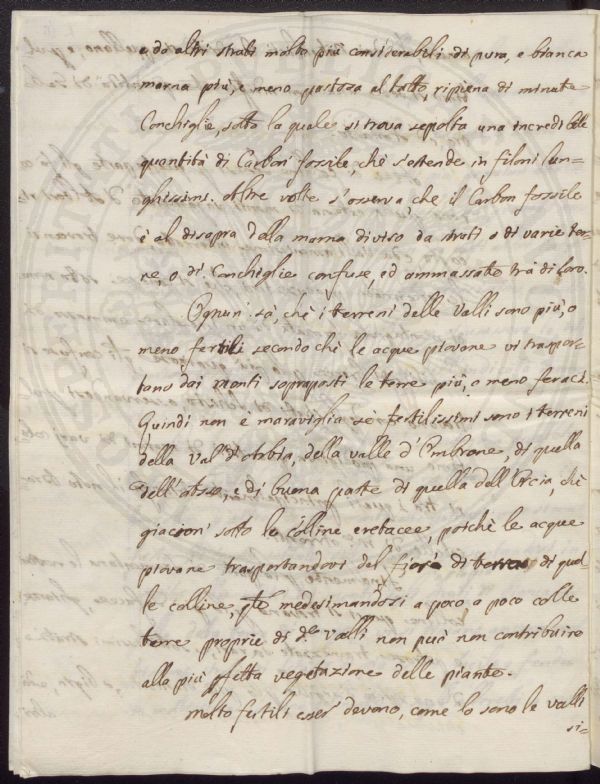 e do altri strati molto più considerabili di pura, e bianca
marna più, e meno pastosa al tatto, ripiena di minute
Conchiglie, sotto la quale si trova sepolta una incredibile
quantità di Carbon' fossile, che s'estende in filoni lun=
ghissimi. Altre volte s'osserva, che il Carbon fossile
è al disopra della marna diviso da strati o di varie ter=
re, o di Conchiglie confuse, ed ammassate trà di loro.
Ognun' sà, che i terreni delle Valli sono più, o
meno fertili secondo che le acque piovane vi traspor=
tano dai monti sopraposti le terre più, o meno feraci.
Quindi non è maraviglia se fertilissimi sono i terreni
della Val' d'Arbia, della valle d'Ombrone, di quella
dell'Asso, e di buona parte di quella dell'Orcia, che
giacion' sotto le colline cretacee, poichè le acque
piovane trasportandovi del fiore di terra di quel=
le colline, q.te medesimandosi a poco, a poco colle
terre proprie di d.e Valli non può non contribuire
alla più pfetta vegetazione delle piante.
Molto fertili esser devono, come lo sono le valli
si=